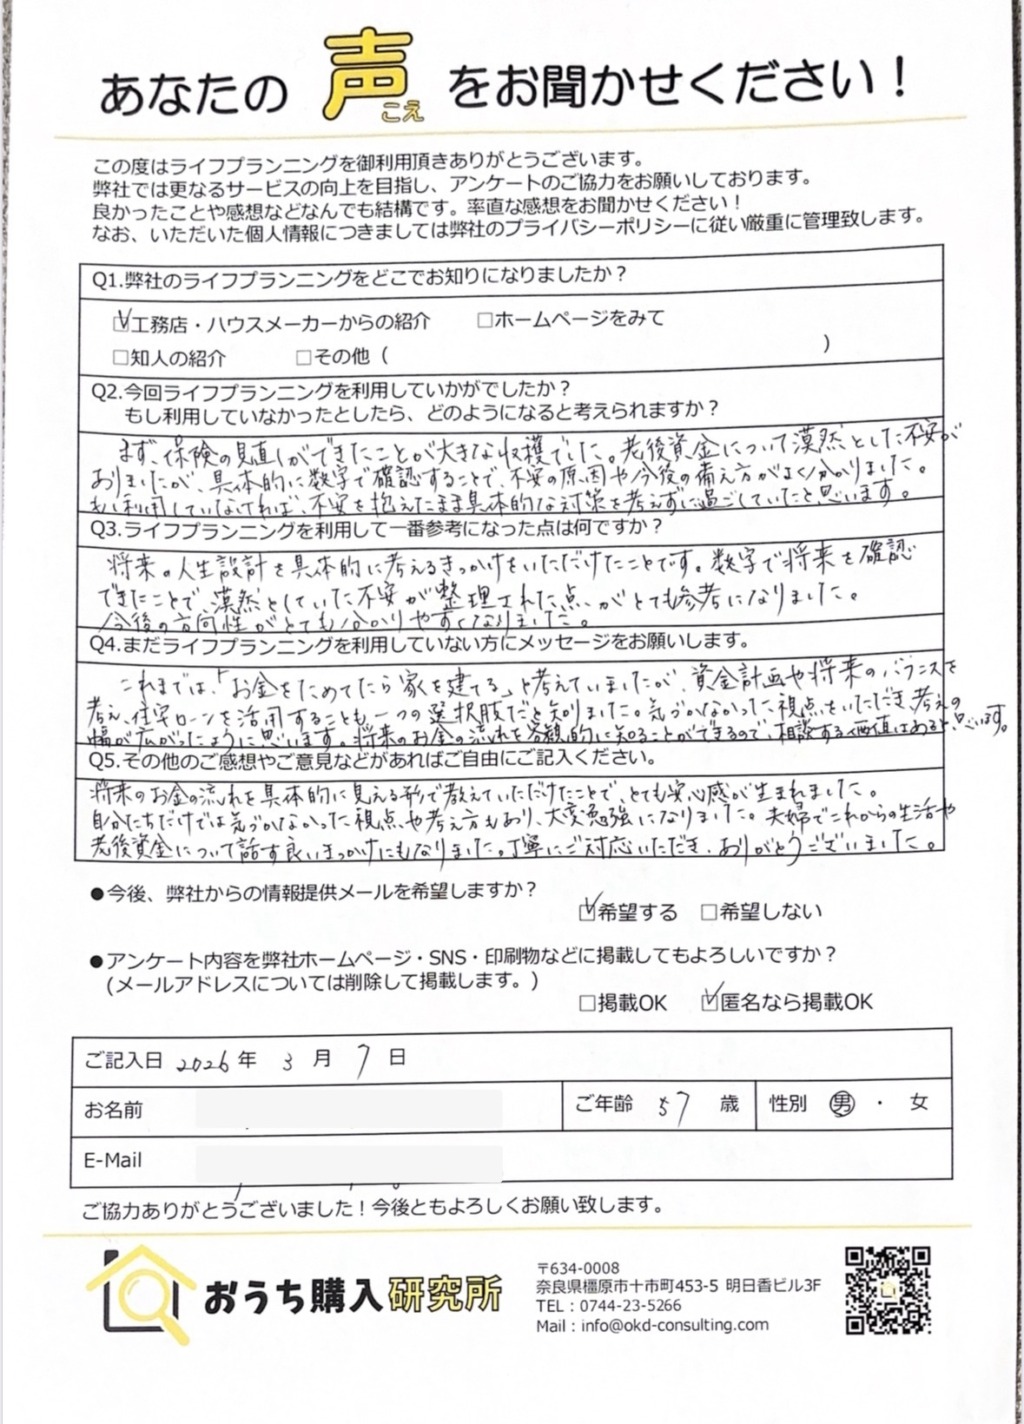 あなたの声をお聞かせください！
こえ
この度はライフプランニングを御利用頂きありがとうございます。
弊社では更なるサービスの向上を目指し、アンケートのご協力をお願いしております。
良かったことや感想などなんでも結構です。率直な感想をお聞かせください！
なお、いただいた個人情報につきましては弊社のプライバシーポリシーに従い厳重に管理致します。
Q1.弊社のライフプランニングをどこでお知りになりましたか？
☑工務店・ハウスメーカーからの紹介 □ホームページをみて
□知人の紹介 □その他（ ）
Q2.今回ライフプランニングを利用していかがでしたか？
もし利用していなかったとしたら、どのようになると考えられますか？
まず、保険の見直しができたことが大きな収穫でした。老後資金について漠然とした不安が
ありましたが、具体的に数字で確認することで、不安の原因や今後の備え方がよく分かりました。
もし利用していなければ、不安を抱えたまま具体的な対策を考えずに過ごしていたと思います。
Q3.ライフプランニングを利用して一番参考になった点は何ですか？
将来の人生設計を具体的に考えるきっかけをいただけたことです。数字で将来を確認
できたことで、漠然としていた不安が整理された点がとても参考になりました。
今後の方向性がとても分かりやすくなりました。
Q4.まだライフプランニングを利用していない方にメッセージをお願いします。
これまでは、「お金をためてたら家を建てる」と考えていましたが、資金計画や将来のバランスを
考え、住宅ローンを活用することも一つの選択肢だと知りました。気づかなかった視点をいただき、考えの
幅が広がったように思います。将来のお金の流れを客観的に知ることができるので、相談する価値はあると思います。
Q5.その他のご感想やご意見などがあればご自由にご記入ください。
将来のお金の流れを具体的に見える形で教えていただけたことで、とても安心感が生まれました。
自分たちだけでは気づかなかった視点や考え方もあり、大変勉強になりました。夫婦でこれからの生活や
老後資金について話す良いきっかけにもなりました。丁寧にご対応いただき、ありがとうございました。
●今後、弊社からの情報提供メールを希望しますか？
☑希望する □希望しない
●アンケート内容を弊社ホームページ・SNS・印刷物などに掲載してもよろしいですか？
(メールアドレスについては削除して掲載します。)
□掲載OK ☑匿名なら掲載OK
ご記入日 2026年 3月 7日
お名前 ご年齢 57 歳 性別 男 ・ 女
E-Mail
ご協力ありがとうございました！今後ともよろしくお願い致します。
おうち購入研究所
〒634-0008
奈良県橿原市十市町453-5 明日香ビル3F
TEL：0744-23-5266
Mail：info@okd-consulting.com